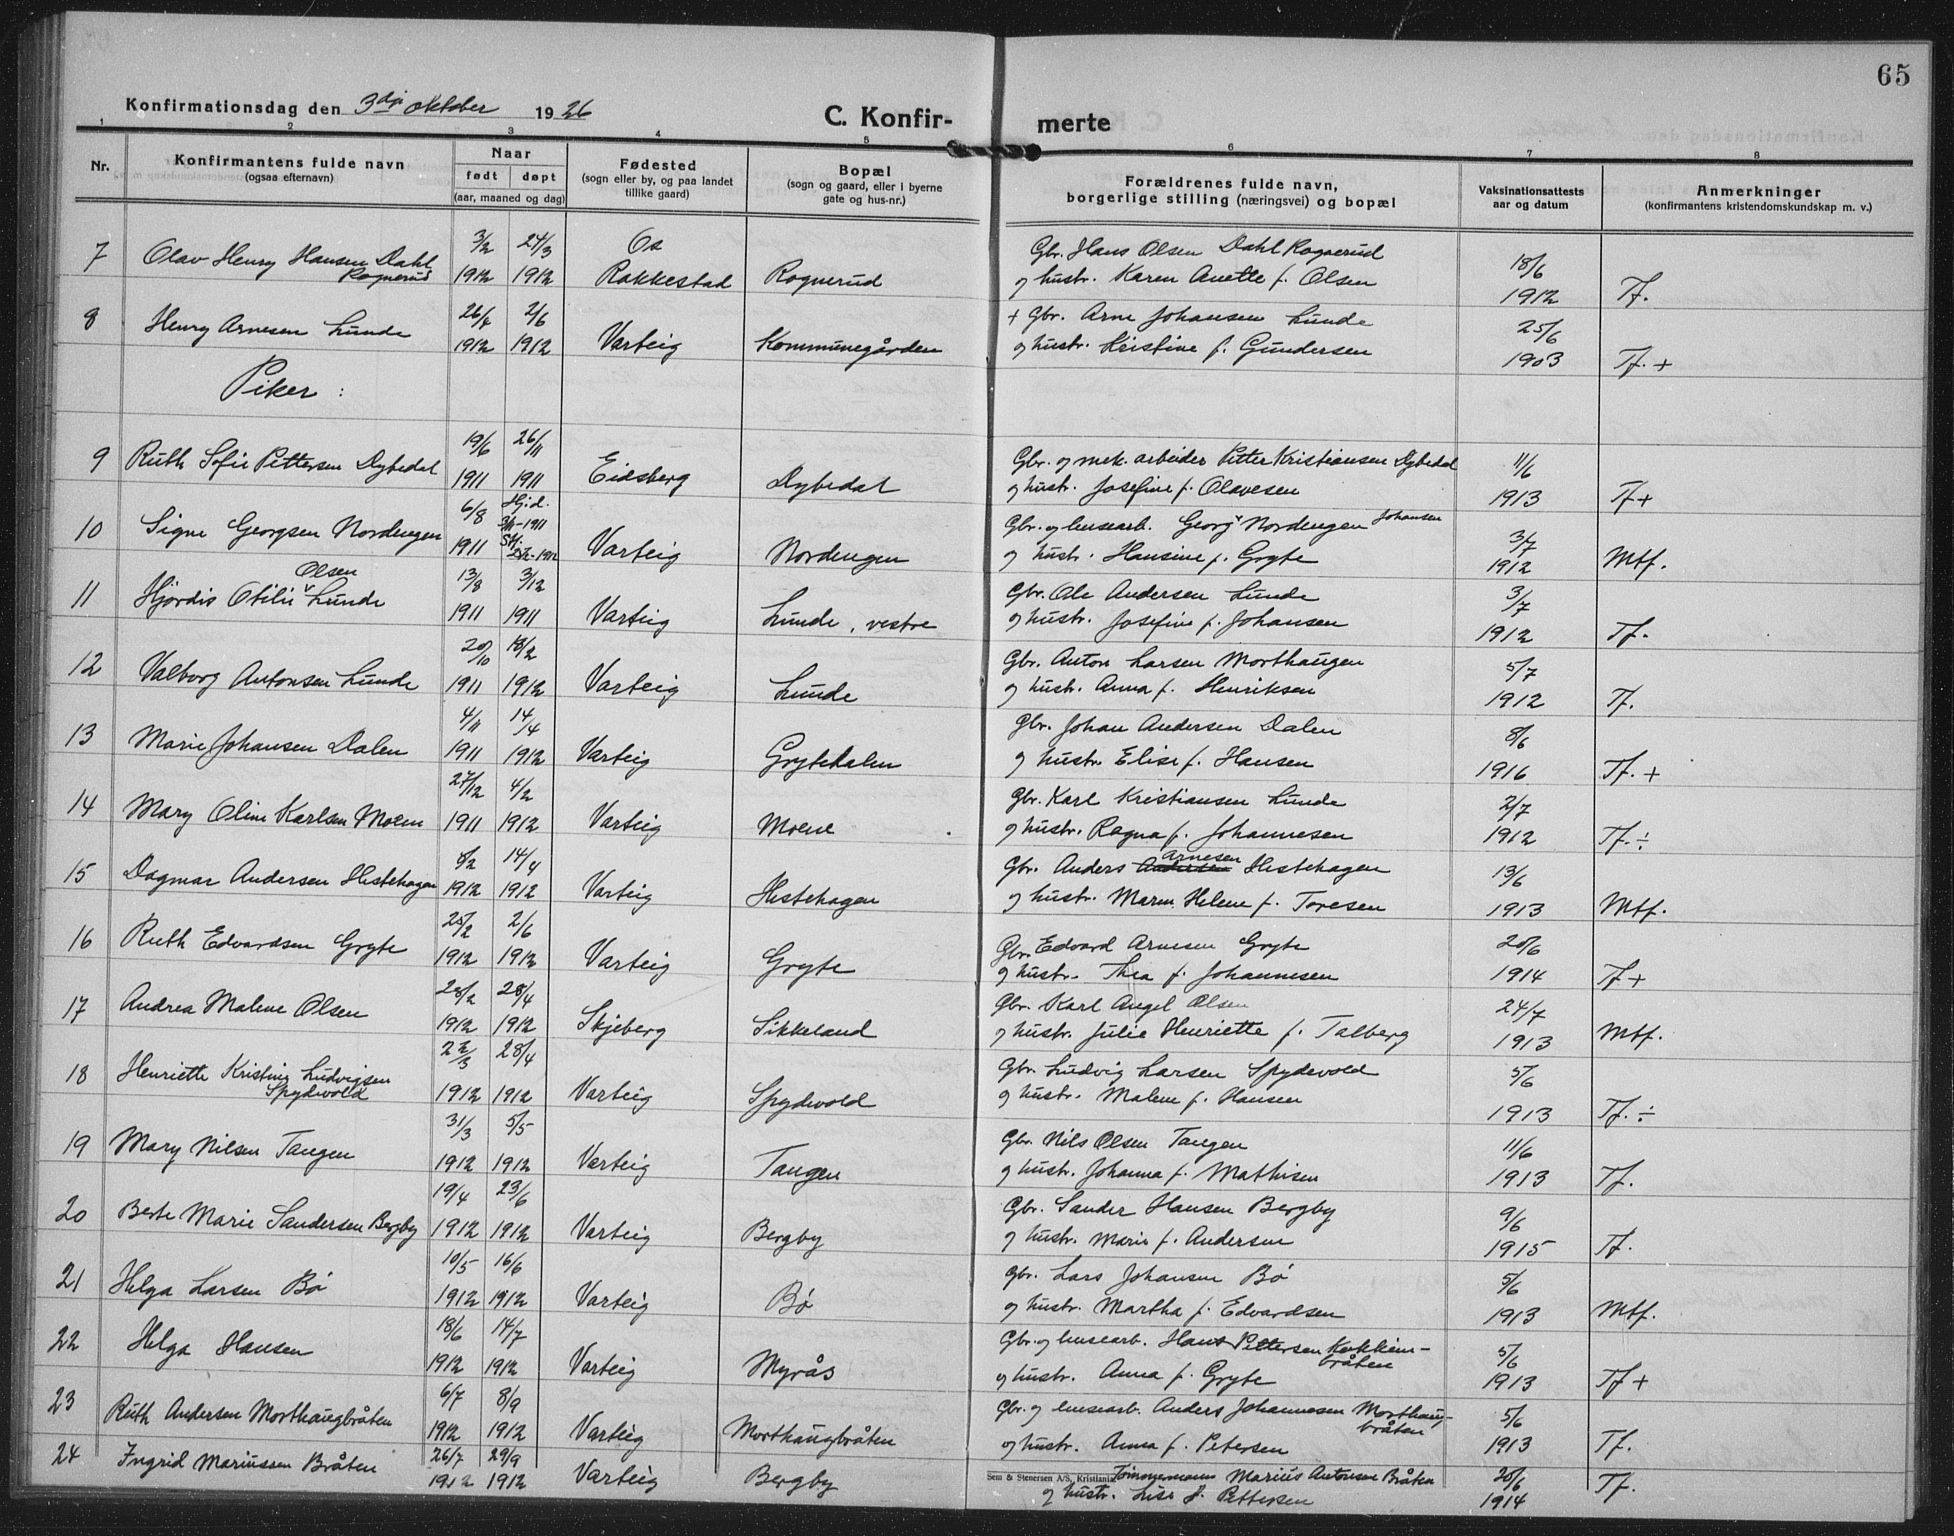 65
Konfirmationsdag den 3dje oktober 1926
C. Konfir- merte
1 2 3 4 5 6 7 8
Nr. Konfirmantens fulde navn (ogsaa efternavn) Naar født døpt (aar, maaned og dag) Fødested (sogn eller by, og paa landet tillike gaard) Bopæl (sogn og gaard, eller i byerne gate og hus-nr.) Forældrenes fulde navn, borgerlige stilling (næringsvei) og bopæl Vaksinationsattests aar og datum Anmerkninger (konfirmantens kristendomskundskap m. v.)
7 Olav Henry Hansen Dahl Rognerud 3/2 1912 24/3 1912 Os Rakkestad Rognerud Gbr. Hans Olsen Dahl Rognerud og hustr. Karen Anette f. Olsen 18/6 1912 Tf.
8 Henry Arnesen Lunde 26/4 1912 2/6 1912 Varteig Kommunegården + Gbr. Arne Johansen Lunde og hustr. Kristine f. Gundersen 25/6 1903 Tf. +
Piker :
9 Ruth Sofie Pettersen Dybedal 19/6 1911 26/11 1911 Eidsberg Dybedal Gbr. og mek. arbeider Petter Kristiansen Dybedal og hustr. Josefine f. Olavesen 11/6 1913 Tf +
10 Signe Georgsen Nordengen 6/8 1911 Hj.d. 3/11-1911 St. 1912 Varteig Nordengen Gbr. og busearb. Georg Johansen Nordengen og hustr. Hansine f. Gryte 3/7 1912 Mtf.
11 Hjørdis Otilie Olsen Lunde 13/8 1911 3/12 1911 Varteig Lunde, vestre Gbr. Ole Andersen Lunde og hustr. Josefine f. Johansen 3/7 1912 Tf.
12 Valborg Antonsen Lunde 20/10 1911 18/2 1912 Varteig Lunde Gbr. Anton Larsen Morthaugen og hustr. Anna f. Henriksen 5/7 1912 Tf.
13 Marie Johansen Dalen 4/11 1911 14/4 1912 Varteig Grytedalen Gbr. Johan Andersen Dalen og hustr. Elise f. Hansen 8/6 1916 Tf. +
14 Mary Oline Karlsen Moen 27/12 1911 4/2 1912 Varteig Moene Gbr. Karl Kristiansen Lunde og hustr. Ragna f. Johannesen 2/7 1912 Tf. ÷
15 Dagmar Andersen Hestehagen 8/2 1912 14/4 1912 Varteig Hestehagen Gbr. Anders Andersen Arnesen Hestehagen og hustr. Maren Helene f. Toresen 13/6 1913 Mtf.
16 Ruth Edvardsen Gryte 25/2 1912 2/6 1912 Varteig Gryte Gbr. Edvard Arnesen Gryte og hustr. Thea f. Johannesen 20/6 1914 Tf +
17 Andrea Malene Olsen 28/2 1912 28/4 1912 Skjeberg Sikkeland Gbr. Karl Angel Olsen og hustr. Julie Henriette f. Talberg 24/7 1913 Mtf.
18 Henriette Kristine Ludvigsen Spydevold 1912 28/4 1912 Varteig Spydevold Gbr. Ludvig Larsen Spydevold og hustr. Malene f. Hansen 5/6 1913 Tf. ÷
19 Mary Nilsen Tangen 31/3 1912 5/5 1912 Varteig Tangen Gbr. Nils Olsen Tangen og hustr. Johanna f. Mathisen 11/6 1913 Tf.
20 Berte Marie Sandersen Bergby 19/4 1912 23/6 1912 Varteig Bergby Gbr. Sander Hansen Bergby og hustr. Marie f. Andersen 9/6 1915 Tf.
21 Helga Larsen Bø 10/5 1912 16/6 1912 Varteig Bø Gbr. Lars Johansen Bø og hustr. Martha f. Edvardsen 5/6 1913 Mtf.
22 Helga Hansen 18/6 1912 14/7 1912 Varteig Myrås Gbr. og busearb. Hans Pettersen Kokkeim- bråten og hustr. Anna f. Gryte 5/6 1913 Tf +
23 Ruth Andersen Morthaugbråten 6/7 1912 8/9 1912 Varteig Morthaugbråten Gbr. og busearb. Anders Johannesen Morthaug- bråten og hustr. Anna f. Petersen 5/6 1913 Tf.
24 Ingrid Mariussen Bråten 26/7 1912 29/9 1912 Varteig Bergby Tømmermann Marius Antonsen Bråten og hustr. Lise f. Pettersen 20/6 1914 Tf.
Sem & Stenersen A/S, Kristiania.